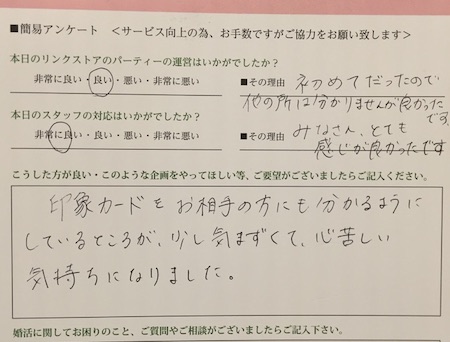 ■簡易アンケート ＜サービス向上の為、お手数ですがご協力をお願い致します＞
本日のリンクストアのパーティーの運営はいかがでしたか？
非常に良い・良い・悪い・非常に悪い ■その理由 初めてだったので
他の所は分かりませんが良かった
です。
本日のスタッフの対応はいかがでしたか？
非常に良い・良い・悪い・非常に悪い ■その理由 みなさん、とても
感じが良かったです
こうした方が良い・このような企画をやってほしい等、ご要望がございましたらご記入ください。
印象カードをお相手の方にも分かるように
しているところが、少し気まずくて、心苦しい
気持ちになりました。
婚活に関してお困りのこと、ご質問やご相談がございましたらご記入下さい。